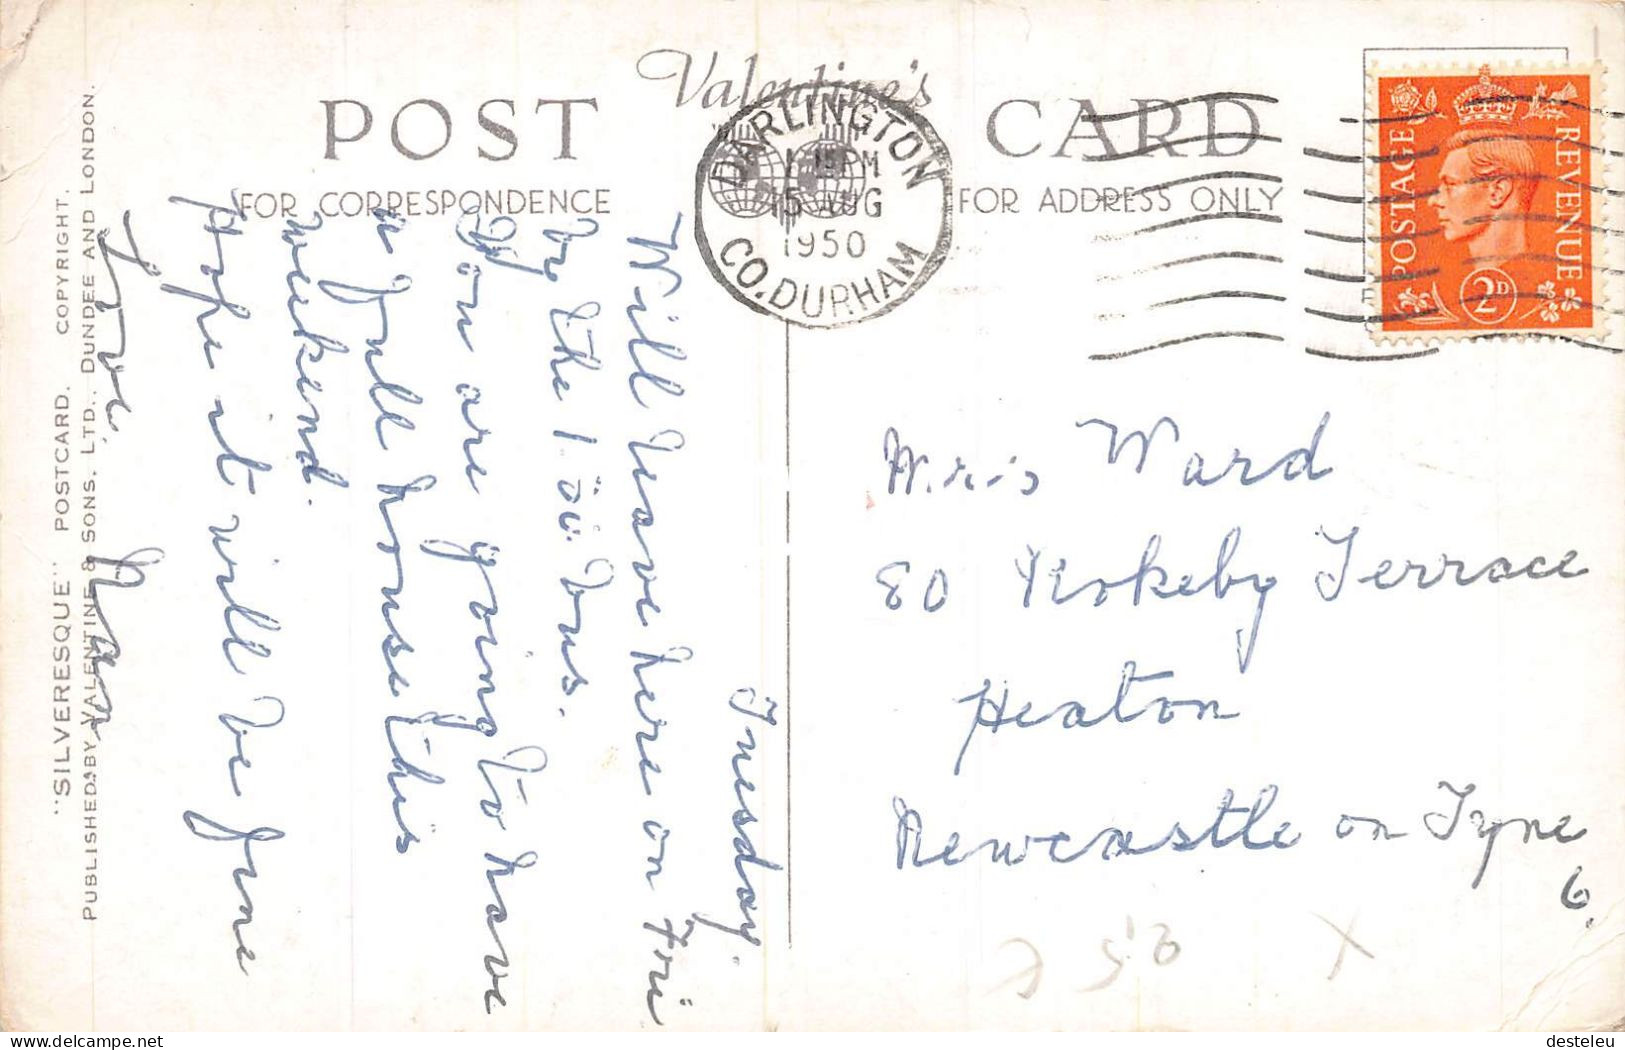 Valentine's
POST CARD
FOR CORRESPONDENCE
FOR ADDRESS ONLY
DARLINGTON
1 15 PM
15 AUG
1950
CO. DURHAM
POSTAGE
REVENUE
2D
Tuesday.
Will leave here on Fri
by the 1 bus.
You are going to have
a full house this
weekend.
Hope it will be fine
Love,
Nan
Ward
80 Rokeby Terrace
Heaton
Newcastle on Tyne
6.
"SILVERESQUE" POSTCARD. COPYRIGHT.
PUBLISHED BY VALENTINE & SONS. LTD., DUNDEE AND LONDON.
delcampe.net
desteleu